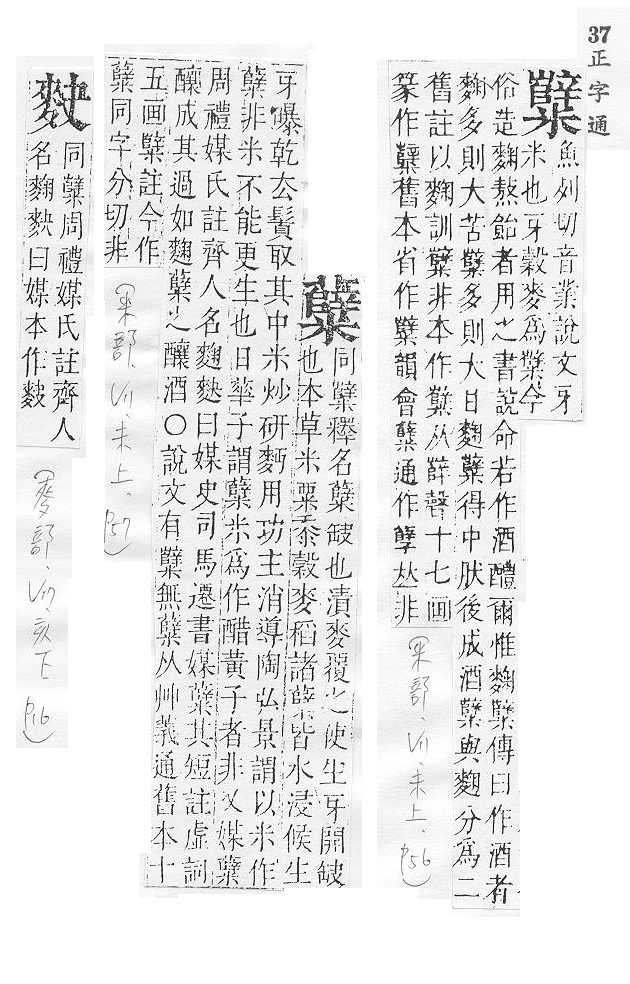 37
正字通
糱
魚列切音業說文牙
米也牙穀麥爲糱今
俗造麴熬飴者用之書說命若作酒醴爾惟麴糱傳曰作酒者
麴多則大苦糱多則大日麴糱得中肰後成酒糱與麴分爲二
舊註以麴訓糱非本作糱从辥聲十七画
篆作糱舊本省作糱韻會糱通作孽𠀤非
米部、VII、未上、P56
糵
同糱釋名糵缺也漬麥覆之使生牙開缺
也本草米粟黍穀麥稻諸糵皆水浸候生
牙曝乾去鬚取其中米炒研麪用功主消導陶弘景謂以米作
糵非米不能更生也日華子謂糵米爲作酷黃子者非又媒糵
周禮媒氏註齊人名麴麩曰媒史司馬遷書媒糵其短註虛詞
釀成其過如麴糵之釀酒〇說文有糱無糵从艸義通舊本十
五画糱註今作
糵同字分切非
米部、VII、未上、P57
䴬
同糱周禮媒氏註齊人
名麴䴬曰媒本作䴬
麥部、VII、亥下、P16